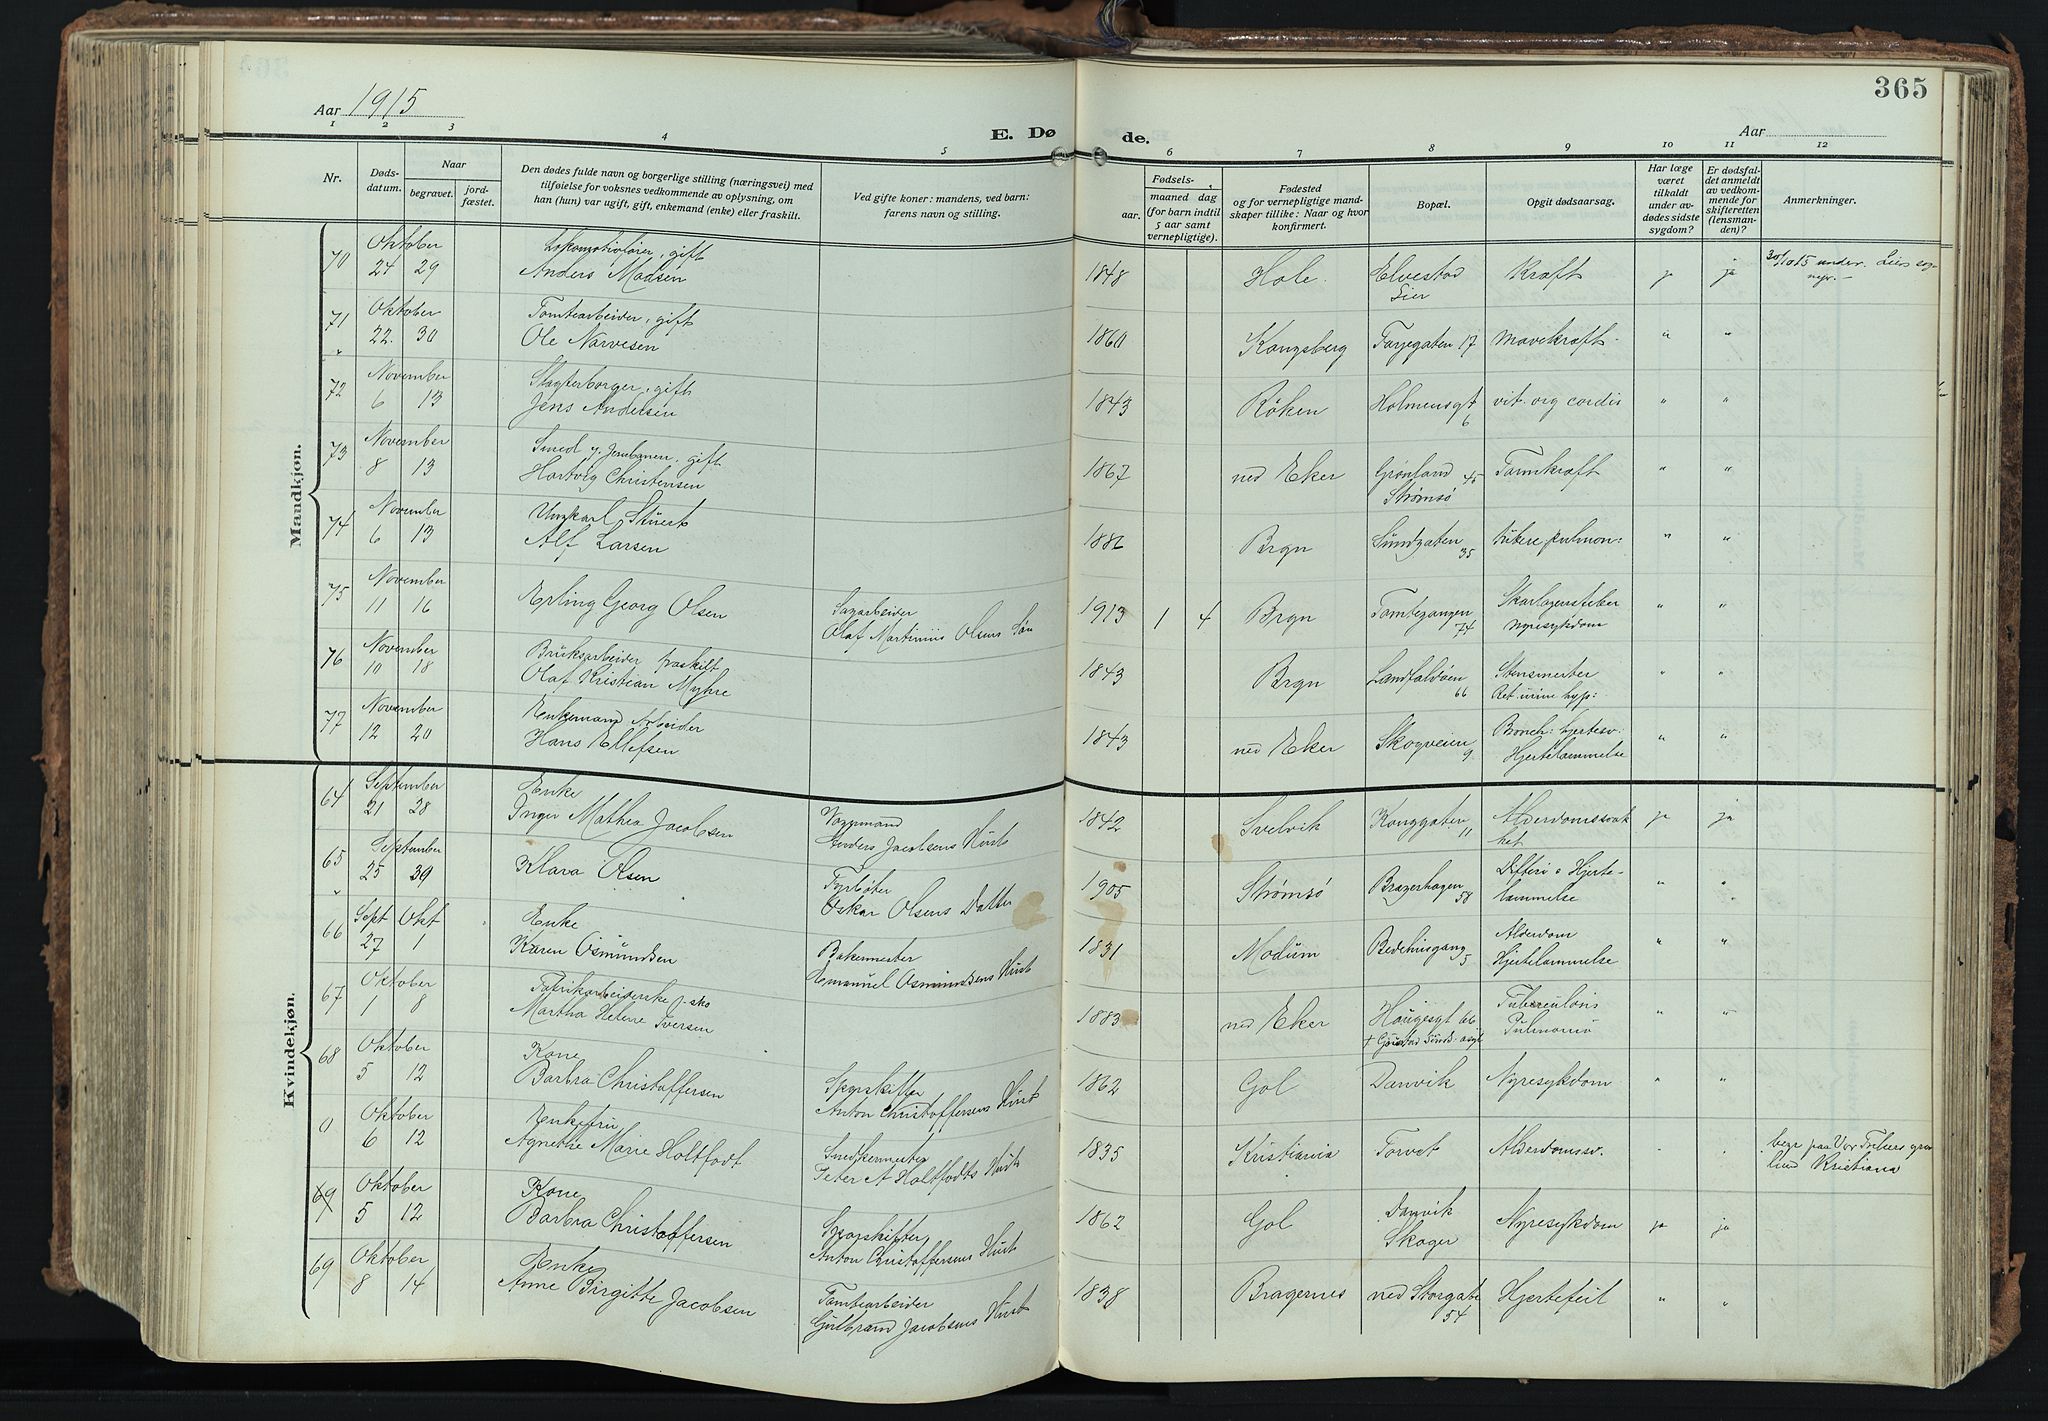 365
Aar 1915
E. Dø
de.
Aar
1 2 3 4 5 6 7 8 9 10 11 12
Nr.
Døds-
datum.
Naar
begravet.
jord-
fæstet.
Den dødes fulde navn og borgerlige stilling (næringsvei) med
tilføielse for voksnes vedkommende av oplysning, om
han (hun) var ugift, gift, enkemand (enke) eller fraskilt.
Ved gifte koner: mandens, ved barn:
farens navn og stilling.
Fødsels-
aar.
maaned dag
(for barn indtil
5 aar samt
vernepligtige).
Fødested
og for vernepligtige mand-
skaper tillike: Naar og hvor
konfirmert.
Bopæl.
Opgit dødsaarsag.
Har læge
været
tilkaldt
under av-
dødes sidste
sygdom?
Er dødsfal-
det anmeldt
av vedkom-
mende for
skifteretten
(lensman-
den)?
Anmerkninger.
Mandkjøn.
70 Oktober
24 29
Lokomotivfører, gift
Anders Madsen
1848 Hole Elvestad
Lier
Kræft ja ja
30/10 15 under. Liers sog-
nepr.
71 Oktober
22. 30
Tomtearbeider, gift
Ole Narvesen
1860 Kongsberg Torjegaten 17 Mavekræft " "
72 November
6 13
Slagterborger, gift
Jens Andersen
1843 Røken Holmensgt
6
vit. org cordis " "
73 November
8 13
Smed v. Jernbanen, gift
Hartvig Christensen
1867 ned Eker Grønland 45
Strømsø
Tarmkræft " "
74 November
6 13
Ungkarl Stuert
Alf Larsen
1886 Brgn Sundgaten
35
tuberc. pulmon: " "
75 November
11 16
Erling Georg Olsen
Sagarbeider
Olaf Martinius Olsens Søn
1913 1 4 Brgn Tomtegangen
74
Skarlagensfeber
Nyresykdom " "
76 November
10 18
Bruksarbeider fraskilt
Olaf Kristian Myhre
1843 Brgn Landfaldøen
66
Stensmerter
Ret. urine hyp: " "
77 November
12 20
Enkemand Arbeider
Hans Ellefsen
1843 ned Eker Skogveien
9
Bronch: hjertesv.
Hjertelammelse " "
Kvindekjøn.
64 September
21 28
Enke
Inger Mathea Jacobsen
Vognmand
Anders Jacobsens Hust
1842 Svelvik Konggaten
11
Alderdomssvak
het ja ja
65 September
25 30
Klara Olsen
Fyrbøter
Oskar Olsens Datter
1905 Strømsø Bragerhagen
58
Difteri & Hjerte-
lammelse " "
66 Sept Okt
27 1
Enke
Karen Osmundsen
Bakermester
Emanuel Osmundsens Hust
1831 Modum Bedehusgang
5
Alderdom
Hjertelammelse " "
67 Oktober
1 8
Fabrikarbeiderske f. sko
Martha Helene Iversen
1883 ned Eker Haugesgt 66
Tuberculosis
Pulmonis " "
68 Oktober
5 12
Kone
Barbra Christoffersen
Sporskifter
Anton Christoffersens Hust
1862 Gol Danvik Nyresykdom " "
0 Oktober
6 12
Enkefru
Agnethe Marie Holtfodt
Snedkermester
Peter A Holtfodts Hust
1835 Kristiania Torvet Alderdomssv. " "
begr paa Vor Frelsers grav
lund Kristiana
69 Oktober
5 12
Kone
Barbra Christoffersen
Sporskifter
Anton Christoffersens Hust
1862 Gol Danvik
Skoger
Nyresykdom ja ja
69 Oktober
8 14
Enke
Anne Birgitte Jacobsen
Tomtearbeider
Gulbrand Jacobsens Hust
1838 Bragernes ned Storgate
54
Hjertefeil " "